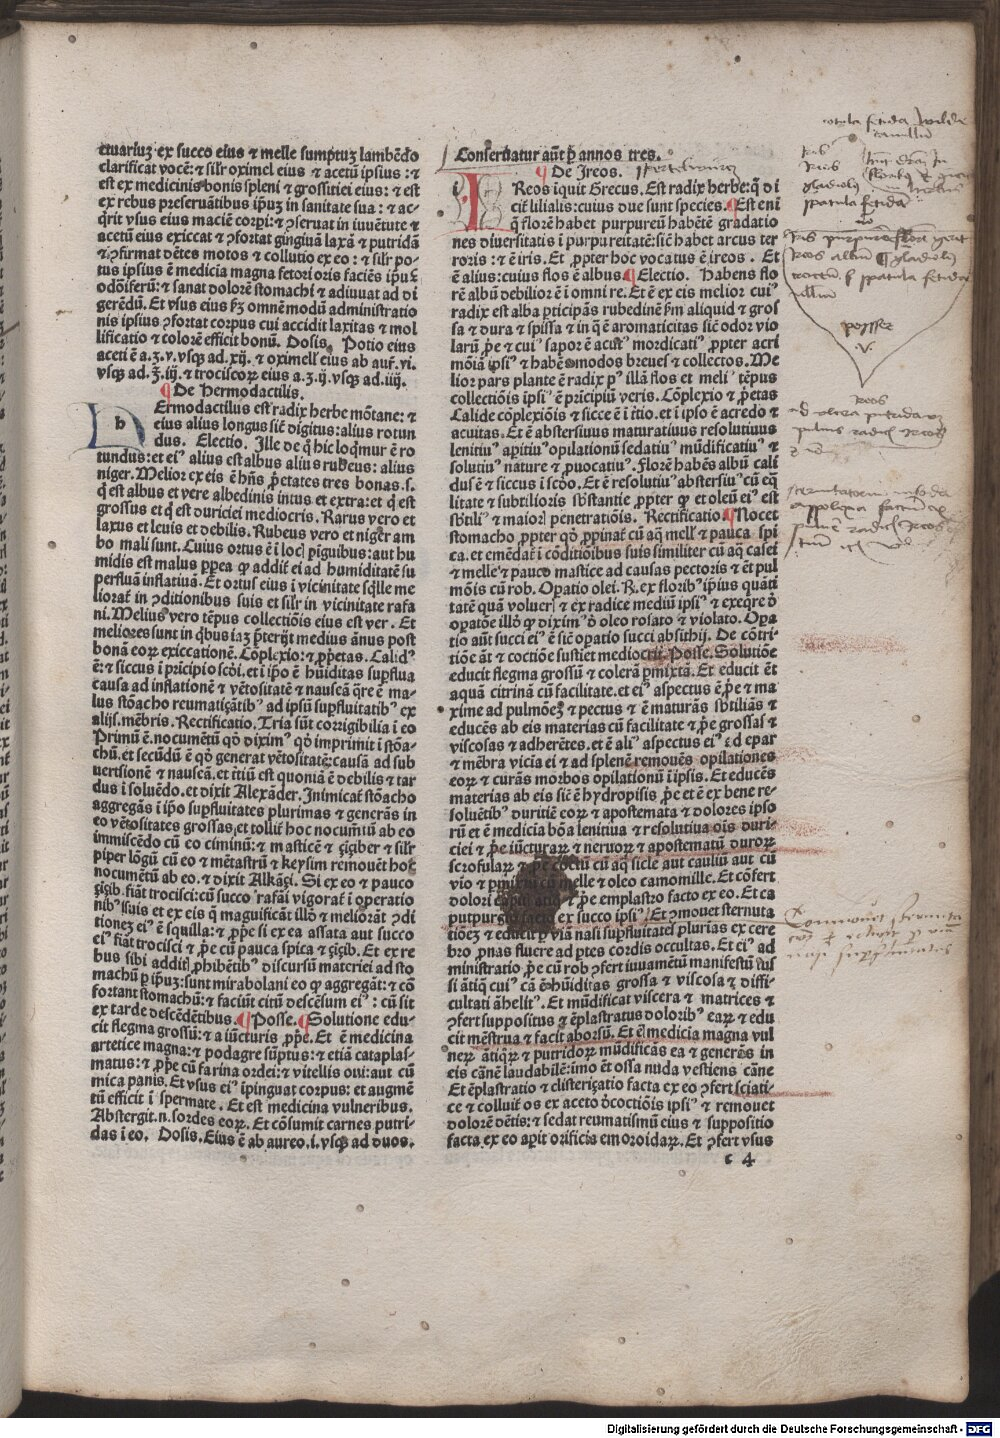 ctuariuʒ ex succo eius ⁊ melle sumptuʒ lambēdo
clarificat vocē: ⁊ silr oximel eius ⁊ acetū ipsius : ⁊
est ex medicinis bonis spleni ⁊ grossitiei eius: ⁊ est
ex rebus preseruātibus ip̄uʒ in sanitate sua : ⁊ ac-
q̄rit vsus eius maciē corpi: ⁊ ꝯseruat in iuuētute ⁊
acetū eius exiccat ⁊ ꝯfortat gingiuā laxā ⁊ putridā
⁊ ꝯfirmat dētes motos ⁊ collutio ex eo : ⁊ silr po-
tus ipsius ē medicia magna fetori oris faciēs ip̄uʒ
odōiferū: ⁊ sanat dolorē stomachi ⁊ adiuuat ad di
gerēdū. Et vsus eius ꝑm omnē modū administratio
nis ipsius ꝯfortat corpus cui accidit laxitas ⁊ mol
lificatio ⁊ colorē efficit bonū. Dosis. Potio eius
aceti ē a.ʒ.v.vsqʒ ad.xij. ⁊ oximell eius ab auf.vi.
vsqʒ ad.ʒ.iij. ⁊ trociscoꝝ eius a.ʒ.ij.vsqʒ ad.iiij.
¶ De Hermodactilis.
Ermodactilus est radix herbe mōtane: ⁊
eius alius longus sic̄ digitus: alius rotun
dus. Electio. Ille de q̄ hic loq̄mur ē ro
tundus: et eiꝰ alius est albus alius rubeus: alius
niger. Melior ex eis ē hn̄s ꝓetates tres bonas.s.
q̄ est albus et vere albedinis intus et extra: et q̄ est
grossus et q̄ est duriciei mediocris. Rarus vero et
laxus et leuis et debilis. Rubeus vero et niger am
bo mali sunt. Cuius ortus ē i locꝭ piguibus: aut hu
midis est malus ꝓpea qꝫ addit ei ad humiditatē su
perfluā inflatiuā. Et ortus eius i vicinitate sq̄lle me
liorat in ꝯditionibus suis et silr in vicinitate rafa
ni. Melius vero tēpus collectiōis eius est ver. Et
meliores sunt in q̄bus iaʒ p̄terijt medius ānus post
bonā eoꝝ exiccationē. Cōplexio: ⁊ ꝓpetas. Calidꝰ
ē: ⁊ siccus i pricipio scōi. et i ip̄o ē hūiditas suꝑflua
causa ad inflationē ⁊ vētositatē ⁊ nauseā q̄re ē ma-
lus stōacho reumatiçātibꝰ ad ipsū suꝑfluitatibꝰ ex
alijs.mēbris. Rectificatio. Tria sūt corrigibilia i eo
Primū ē. nocumētū qō diximꝰ qō imprimit i stōa-
chū. et secūdū ē qō generat vētositatē: causā ad sub
uersionē ⁊ nauseā. et t̄tiū est quoniā ē debilis ⁊ tar
dus i soluēdo. et dixit Alexāder. Inimicat stōacho
aggregās i ip̄o suꝑfluitates plurimas ⁊ generās in
eo vētositates grossas, et tollit hoc nocumētū ab eo
immiscēdo cū eo ciminū: ⁊ masticē ⁊ çiçiber ⁊ silr
piper lōgū cū eo ⁊ mētastrū ⁊ keysim remouēt hoc
nocumētū ab eo. ⁊ dixit Alkāçi. Si ex eo ⁊ pauco
çiçib. fiāt trocisci: cū succo rafāi vigorat̄ i operatio
nibꝰ suis et ex eis q̄ maguificāt illō ⁊ meliorāt ꝯdi
tioneʒ eiꝰ ē squilla: ⁊ ꝓpe si ex ea assata aut succo
eiꝰ fiāt trocisci ⁊ ꝓe cū pauca spica ⁊ çiçib. Et ex re
bus sibi additꝭ ꝓhibētibꝰ discursū materiei ad sto
machū ꝑ ip̄uʒ: sunt mirabolani eo qꝫ aggregāt: ⁊ cō
fortant stomachū: ⁊ faciūt citū descēsum eiꝰ : cū sit
ex tarde descēdētibus. ¶ Posse. ¶ Solutione edu-
cit flegma grossū: ⁊ a iūcturis ꝓpe. Et ē medicina
artetice magna: ⁊ podagre sūptus: ⁊ etiā cataplas-
matus: ⁊ ꝓpe cū farina ordei: ⁊ vitellis oui: aut cū
mica panis. Et vsus eiꝰ ipinguat corpus: et augmē
tū efficit i spermate. Et est medicina vulneribus.
Abstergit.n.sordes eoꝝ. Et cōsumit carnes putri-
das i eo. Dosis. Eius ē ab aureo.i.vsqʒ ad duos.
Conseruatur aūt ꝑ annos tres.
¶ De Ireos.
Reos iquit Grecus. Est radix herbe: q̄ di
cit̄ lilialis: cuius due sunt species. ¶ Est eni
q̄ florē habet purpureū habētē gradatio
nes diuersitatis i purpureitate: sic̄ habet arcus ter
roris : ⁊ ē iris. Et ꝓpter hoc vocatus ē ireos . Et
ē alius: cuius flos ē albus. ¶ Electio. Habens flo
rē albū debilior ē i omni re. Et ē ex eis melior cuiꝰ
radix est alba pticipās rubedinē ꝑm aliquid ⁊ gros
sa ⁊ dura ⁊ spissa ⁊ in q̄ ē aromaticitas sic̄ odor vio
larū ꝓe ⁊ cuiꝰ sapor ē acutꝰ mordicatiꝰ ꝓpter acri
mōiā ipsiꝰ ⁊ habēs modos breues ⁊ collectos. Me
lior pars plante ē radix pꝰ illā flos et meliꝰ tēpus
collectiōis ipsiꝰ ē pricipiū veris. Cōplexio ⁊ ꝓetas
Calide cōplexiōis ⁊ sicce ē i itio. et i ipso ē acredo ⁊
acuitas. Et ē abstersiuus maturatiuus resolutiuus
lenitiuꝰ apitiuꝰ opilationū sedatiuꝰ mūdificatiuꝰ ⁊
solutiuꝰ nature ⁊ ꝓuocatiuꝰ. Florē habēs albū cali
dus ē ⁊ siccus i scōo. Et ē resolutiuꝰ abstersiuꝰ cū eq̄
litate ⁊ subtilioris sbstantie ꝓpter qꝫ et oleū eiꝰ est
sbtilꝰ ⁊ maiorꝭ penetratiōis. Rectificatio. ¶ Nocet
stomacho ꝓpter qō ꝓpinat̄ cū aq̄ mellꝭ ⁊ pauca spi
ca. et emēdat̄ i cōditiōibus suis similiter cū aq̄ casei
⁊ melle ⁊ pauco mastice ad causas pectoris ⁊ ēt pul
mōis cū rob. Opatio olei. ℞. ex floribꝰ ip̄ius quāti
tatē quā volueꝭ ⁊ ex radice mediū ipsiꝰ ⁊ exeq̄re ō
opatōe illō qꝫ diximꝰ ō oleo rosato ⁊ violato. Opa
tio aūt succi eiꝰ ē sic̄ opatio succi absithij. De cōtri-
tiōe āt ⁊ coctiōe sustiet mediocrit̄. Posse. Solutiōe
educit flegma grossū ⁊ colerā pmixtā. Et educit ēt
aquā citrinā cū facilitate. et eiꝰ aspectus ē ꝓe ⁊ ma
xime ad pulmōeʒ ⁊ pectus ⁊ ē maturās sbtiliās ⁊
educēs ab eis materias cū facilitate ⁊ ꝓe grossas ⁊
viscosas ⁊ adherētes. et ē aliꝰ aspectus eiꝰ ad epar
⁊ mēbra vicia ei ⁊ ad splenē remouēs opilationes
eoꝝ ⁊ curās morbos opilationū i ipsis. Et educēs
materias ab eis sic̄ ē hydropisis ꝓe et ē ex bene re-
soluētibꝰ duritiē eoꝝ ⁊ apostemata ⁊ dolores ipso
rū et ē medicia bōa lenitiua ⁊ resolutiua ois duri-
ciei ⁊ ꝓe iūcturaꝝ ⁊ neruoꝝ ⁊ apostematū duroꝝ
scrofulaꝝ ⁊ ꝓe coctū cū aq̄ sicle aut cauliū aut cū
vio ⁊ pmixtū cū melle ⁊ oleo camomille. Et cōfert
dolori capit̄ atiq̄ ⁊ ꝓe emplastro facto ex eo. Et ca
putpurgia facta ex succo ipsiꝰ. Et ꝯmouet sternuta
tiōeʒ ⁊ educit ꝑ viā nasi suꝑfluitatē plurias ex cere
bro ꝓnas fluere ad ptes cordis occultas. Et eiꝰ ad
ministratio ꝓe cū rob ꝯfert iuuamētū manifestū tus
si atiq̄ cuiꝰ cā ē hūiditas grossa ⁊ viscosa ⁊ diffi-
cultati āhelitꝰ. Et mūdificat viscera ⁊ matrices ⁊
ꝯfert suppositus ⁊ ēplastratus doloribꝰ eaꝝ ⁊ edu
cit mēstrua ⁊ facit aborsū. Et ē medicia magna vul
neꝝ ātiq̄ꝝ ⁊ putridoꝝ mūdificās ea ⁊ generās in
eis cānē laudabilē: imo ēt ossa nuda vestiens cāne
Et ēplastratio ⁊ clisteriçatio facta ex eo ꝯfert sciati-
ce ⁊ colluit̄ os ex aceto ōcoctiōis ipsiꝰ ⁊ remouet
dolorē dētis: ⁊ sedat reumatismū eius ⁊ suppositio
facta ex eo apit orificia emoroidaꝝ. Et ꝯfert vsus
c 4
Iris
Ireos
gladiolus
spatula fetida
posse
.v.
Ireos
Digitalisierung gefördert durch die Deutsche Forschungsgemeinschaft - DFG